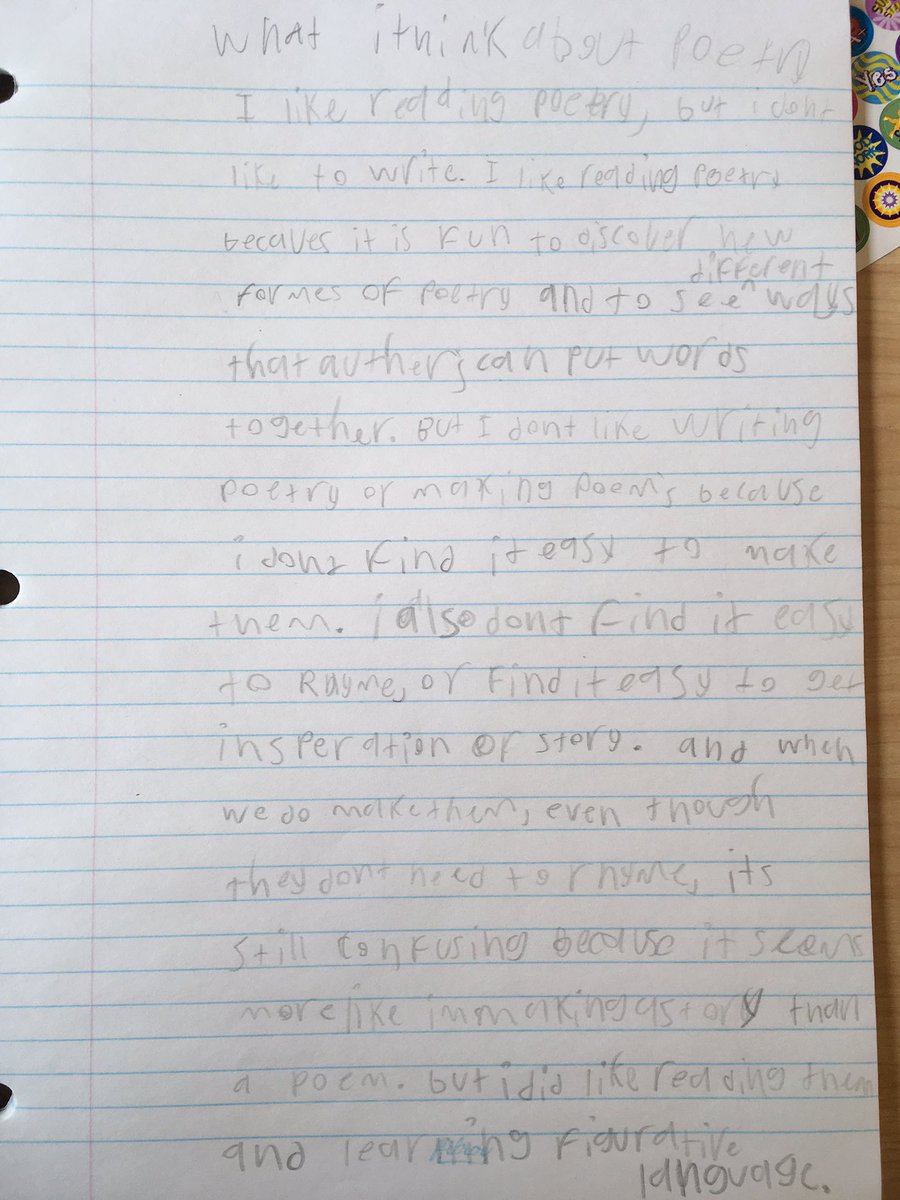 what ithink about poetry
yes
I like reading poetry, but i dont
like to write. I like reading poetry
becaues it is fun to discover new
different
formes of poetry and to see ^ ways
that auther's can put words
together. But I dont like writing
poetry or making poem's because
i dont find it easy to make
them. i also dont find it easy
to Rhyme, or find it easy to get
insperation or story. and when
we do make them, even though
they dont need to rhyme, its
still confusing because it seems
more like im making a story than
a poem. but i did like reading them
and learning figurative
language.